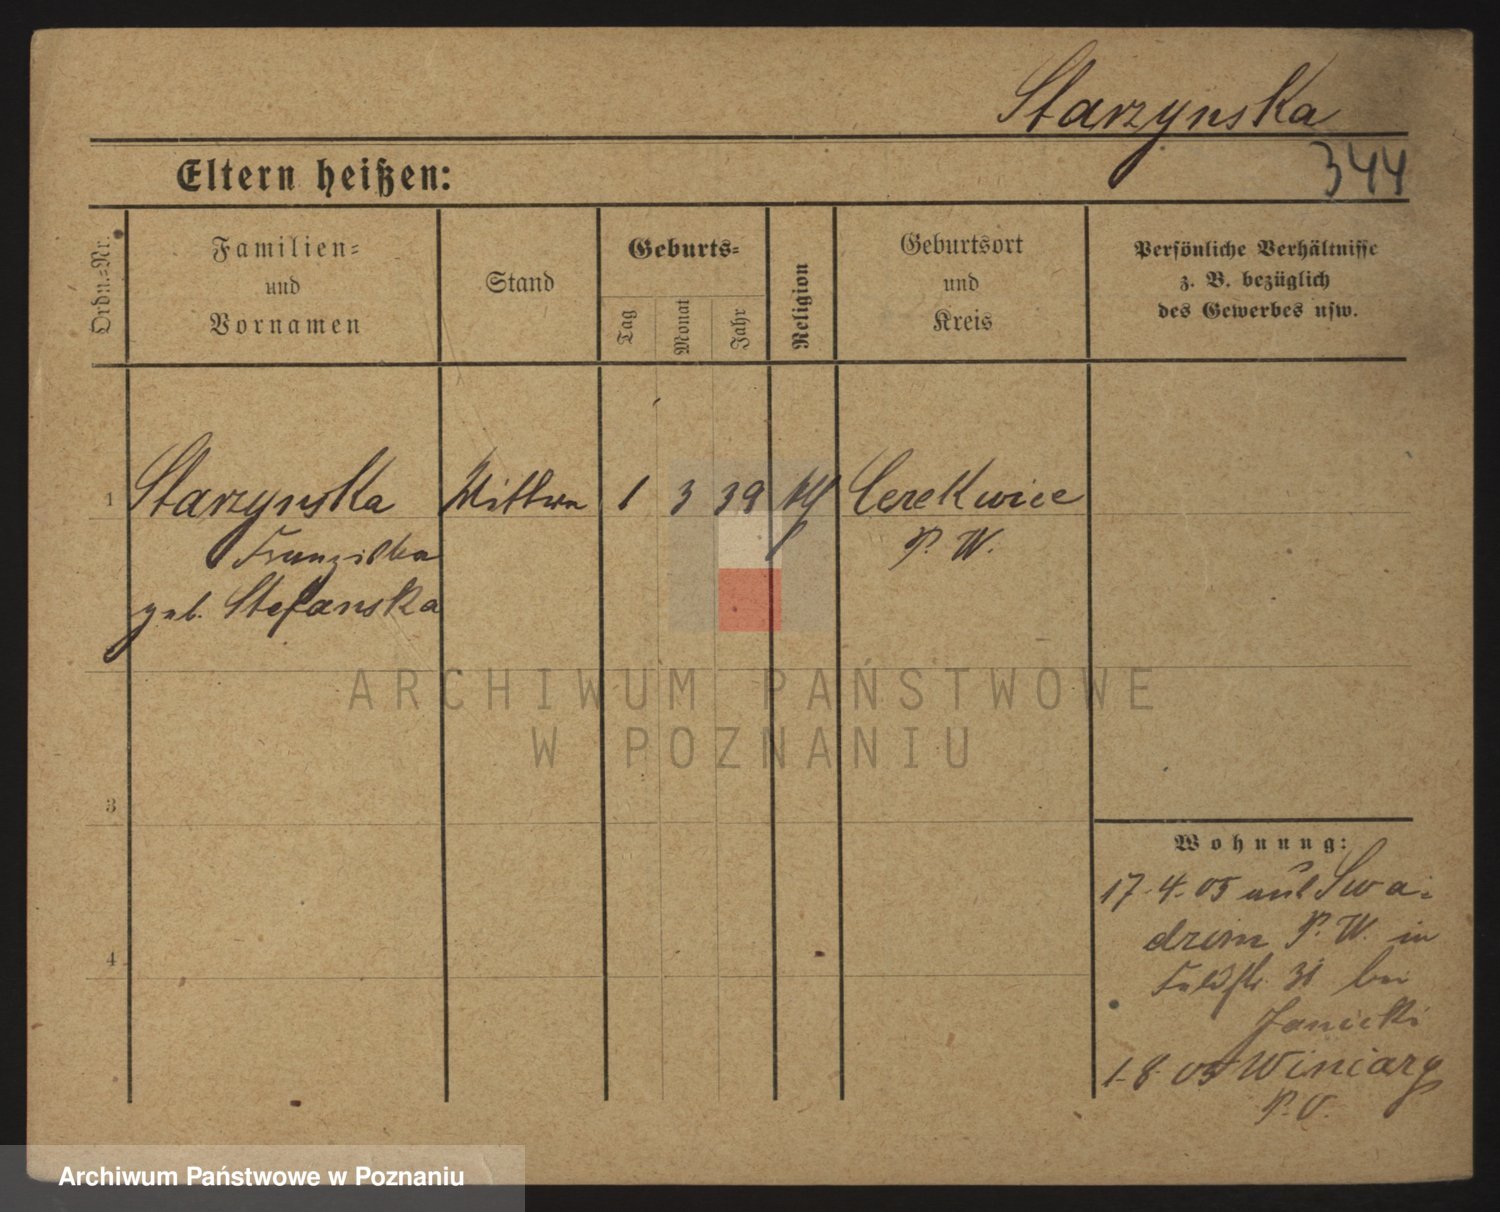 Starzynska
344
Eltern heißen:
Ordn.=Nr.
Familien=
und
Vornamen
Stand
Geburts=
Tag
Monat
Jahr
Religion
Geburtsort
und
Kreis
Persönliche Verhältnisse
z. B. bezüglich
des Gewerbes usw.
1 Starzynska Wittwe 1 3 39 kth Cerekwice
Franziska P. W.
geb. Stefanska
ARCHIWUM PAŃSTWOWE
W POZNANIU
3
Wohnung:
17.4.05 aus Swa=
drim P. W. in
Feldstr. 31 bei
Janicki
4
1.8.05 Winiary
P. O.
Archiwum Państwowe w Poznaniu